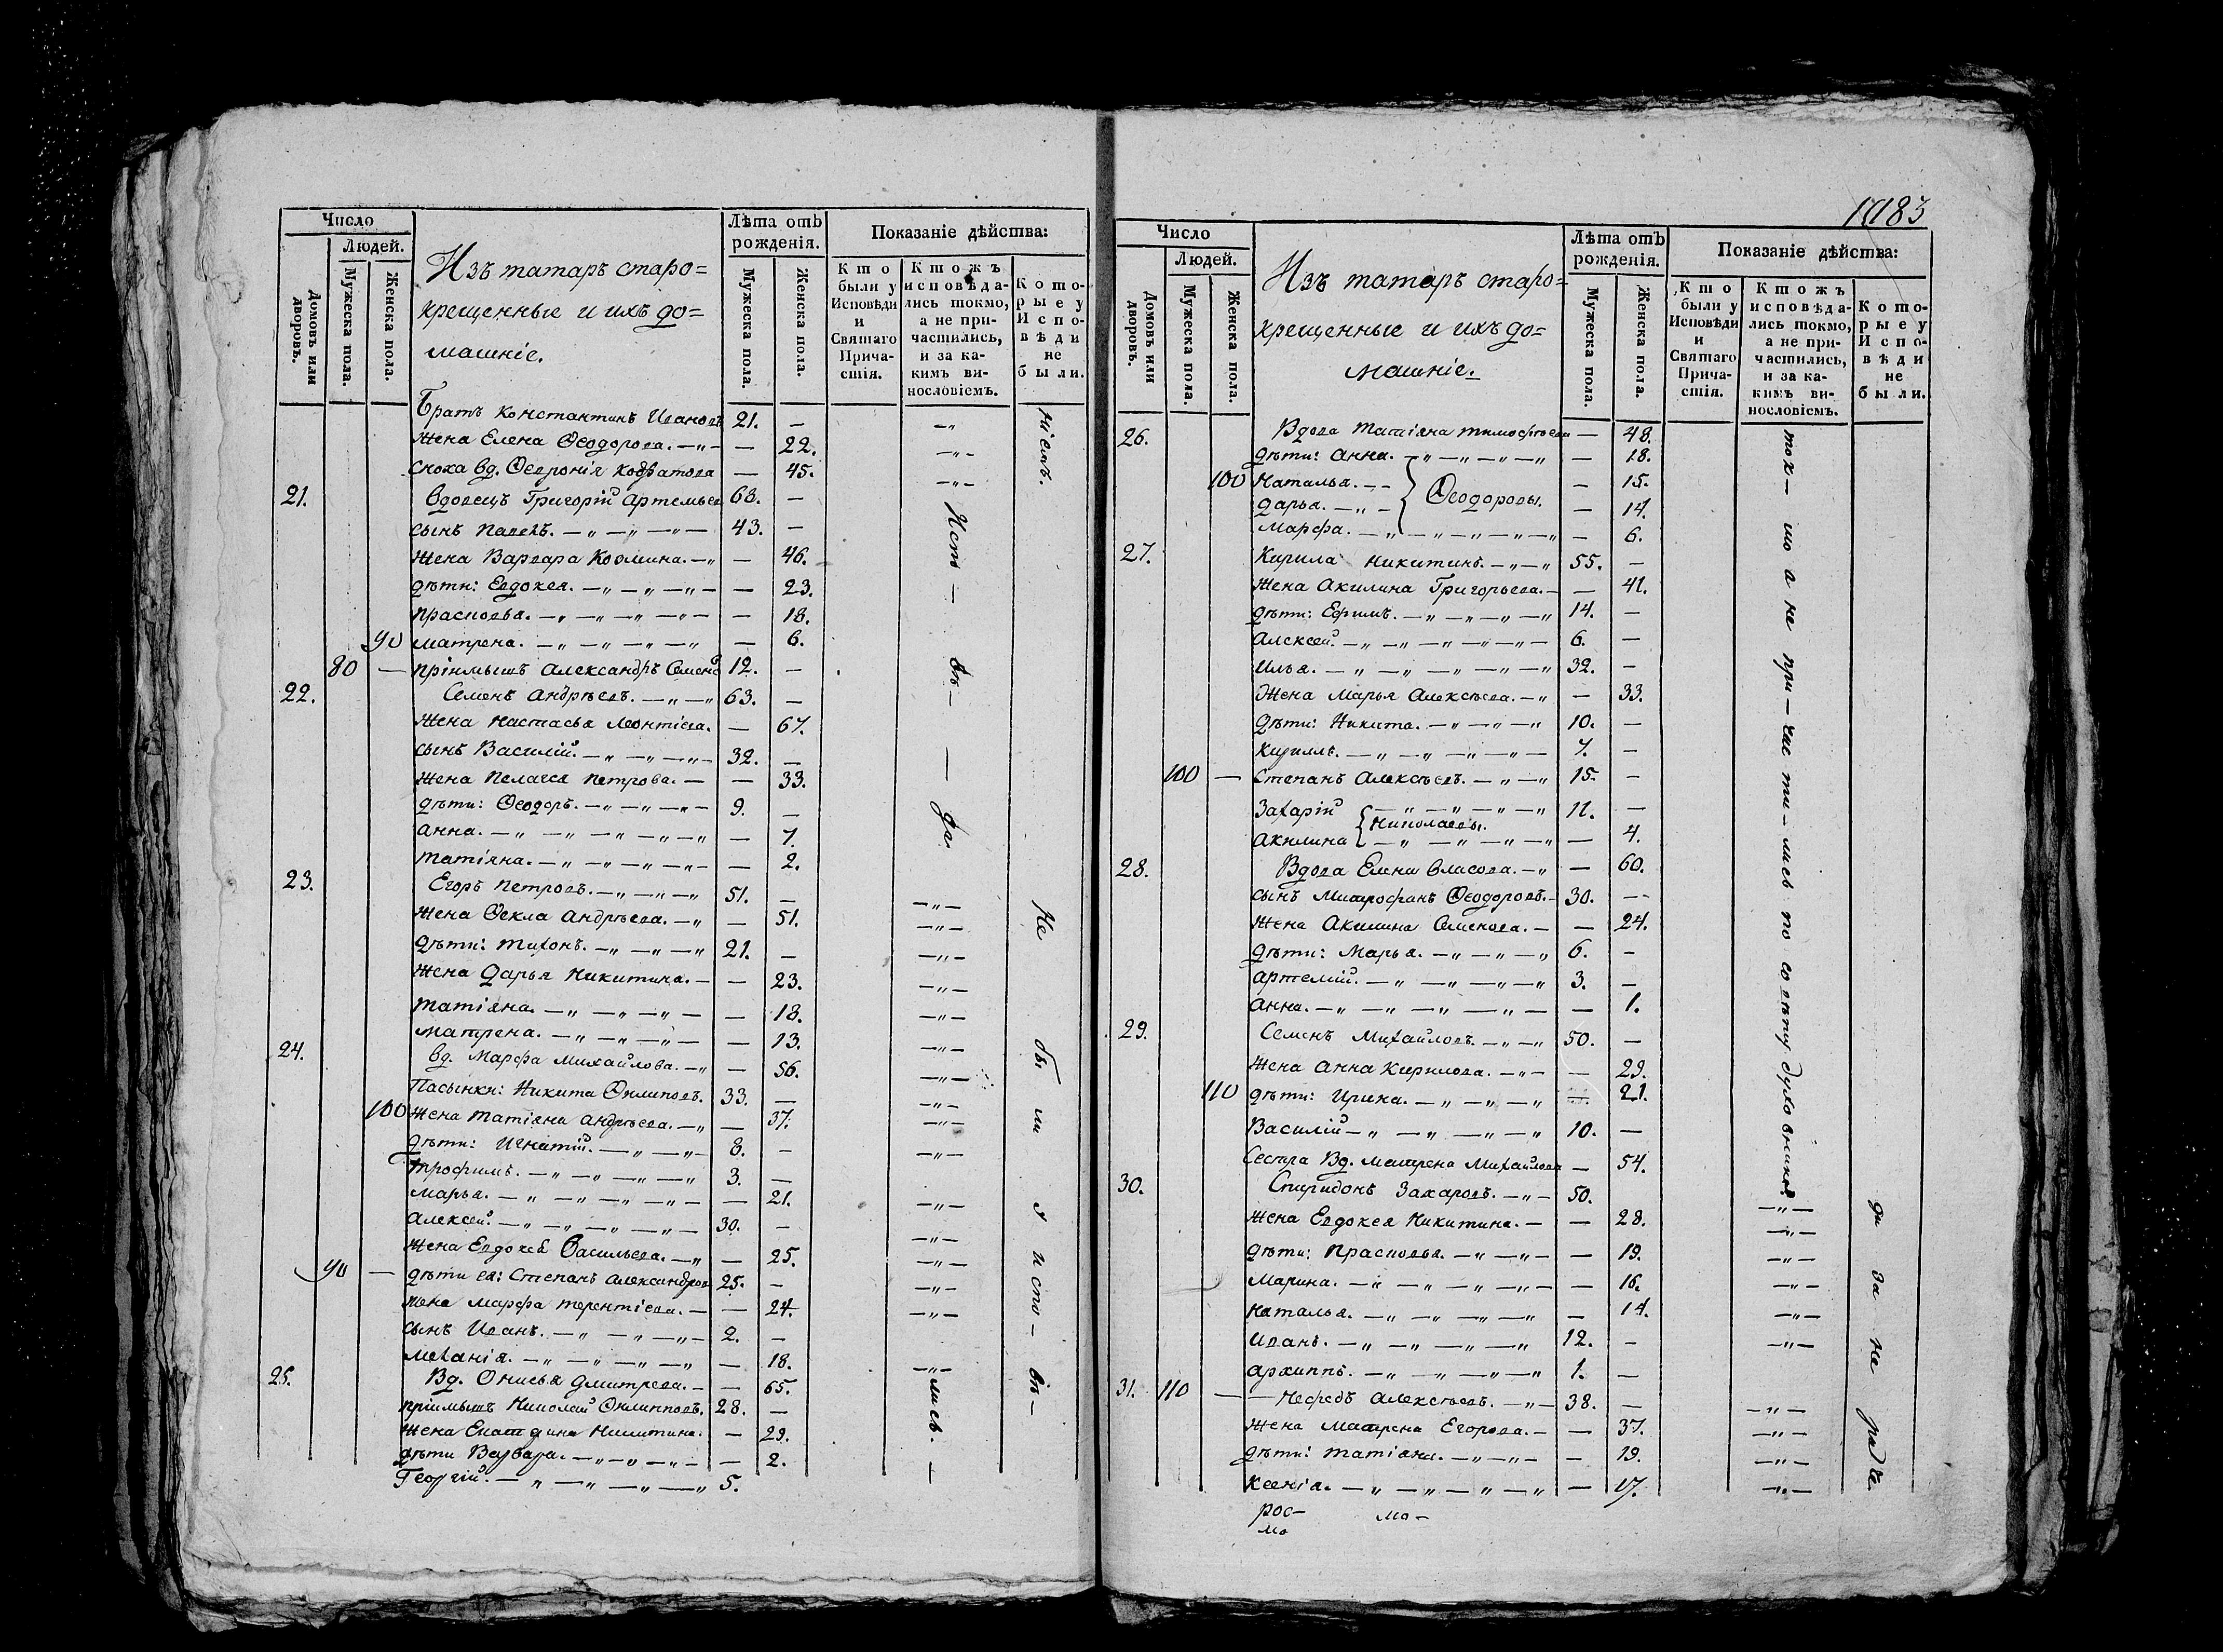 Число
Людей.
Домовъ или дворовъ.
Мужеска пола.
Женска пола.
Изъ татаръ старо=
крещенные и ихъ до=
машніе.
Лѣта отъ рожденія.
Мужеска пола.
Женска пола.
Показаніе дѣйства:
Кто были у Исповѣди и Святаго Прича-стія.
Ктожъ исповѣда-лись токмо, а не при-частились, и за ка-кимъ ви-нословіемъ.
Кото-рые у Испо-вѣди не были.
Братъ Константинъ Ивановъ 21. —
Жена Елена Ѳеодорова. — 22.
сноха вд. Ѳевронія — 45.
21. вдовецъ Григорій Артемьев 68. —
сынъ Павелъ. 43. —
Жена Варвара Козмина. — 46.
дѣти: Евдокея. — 23.
Прасковья. — 18.
90 Матрена. — 6.
80 — Пріимышъ Александръ Семено 12. —
22. Семенъ Андрѣевъ. 63. —
Жена Настасья Леонтіева. — 67.
сынъ Василій. 32. —
Жена Пелагея Петрова. — 33.
дѣти: Ѳеодоръ. 9. —
Анна. — 7.
Татіяна. — 2.
23. Егоръ Петровъ. 51. —
Жена Ѳекла Андрѣева. — 51.
дѣти: Тихонъ. 21. —
Жена Дарья Никитина. — 23.
Татіяна. — 18.
Матрена. — 13.
24. вд. Марфа Михайлова. — 56.
Пасынки: Никита Филиповъ. 33. —
100 Жена Татіяна Андрѣева. — 37.
дѣти: Игнатій. 8. —
Трофимъ. 3. —
Марья. — 21.
Алексей. 30. —
Жена Евдокея Васильева. — 25.
90 — дѣти ея: Степанъ Александров 25. —
жена Марфа Терентіева. — 24.
сынъ Иванъ. 2. —
Меланія. — 18.
25. Вд. Онисья Дмитрева. — 65.
пріимышъ Николай Филипповъ. 28. —
Жена Никитина. — 29.
дѣти Варвара. — 2.
Георгій. 5.
1083
Число
Людей.
Домовъ или дворовъ.
Мужеска пола.
Женска пола.
Изъ татаръ старо=
крещенные и ихъ до=
машніе.
Лѣта отъ рожденія.
Мужеска пола.
Женска пола.
Показаніе дѣйства:
Кто были у Исповѣди и Святаго Прича-стія.
Ктожъ исповѣда-лись токмо, а не при-частились, и за ка-кимъ ви-нословіемъ.
Кото-рые у Испо-вѣди не были.
26. Вдова Татіяна Тимофѣева — 48.
дѣти: Анна. — 18.
100 Наталья. — 15.
Ѳеодоровы.
Дарья. — 14.
Марфа. — 6.
27. Кирила Никитинъ. 55. —
Жена Акилина Григорьева. — 41.
дѣти: Ефимъ. 14. —
Алексей. 6. —
Илья. 32. —
Жена Марья Алексѣева. — 33.
дѣти: Никита. 10. —
Кириллъ. 7. —
100 — Степанъ Алексѣевъ. 15. —
Захарій 11. —
Николаевы.
Акилина — 4.
28. Вдова Елена Власова. — 60.
сынъ Митрофанъ Ѳеодоровъ. 30. —
Жена Акилина Семенова. — 24.
дѣти: Марья. 6. —
Артемій. 3. —
Анна. — 1.
29. Семенъ Михайловъ. 50. —
Жена Анна Кирилова. — 29.
110 дѣти: Ирина. — 21.
Василій 10. —
Сестра Вд. Матрена Михайлова — 54.
30. Спиридонъ Захаровъ. 50.
Жена Евдокея Никитина. — 28.
дѣти: Прасковья. — 19.
Марина. — 16.
Наталья. — 14.
Иванъ. 12. —
Архиппъ. 1. —
31. 110 — Нефедъ Алексѣевъ. 38. —
Жена Матрена Егорова. — 37.
дѣти: Татіяна. — 19.
Ксенія. — 17.
ток— мо а не при— час ти— лись по совѣту духовника
за не ради